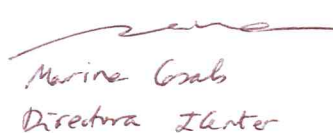 Marina Casals
Directora ICenter